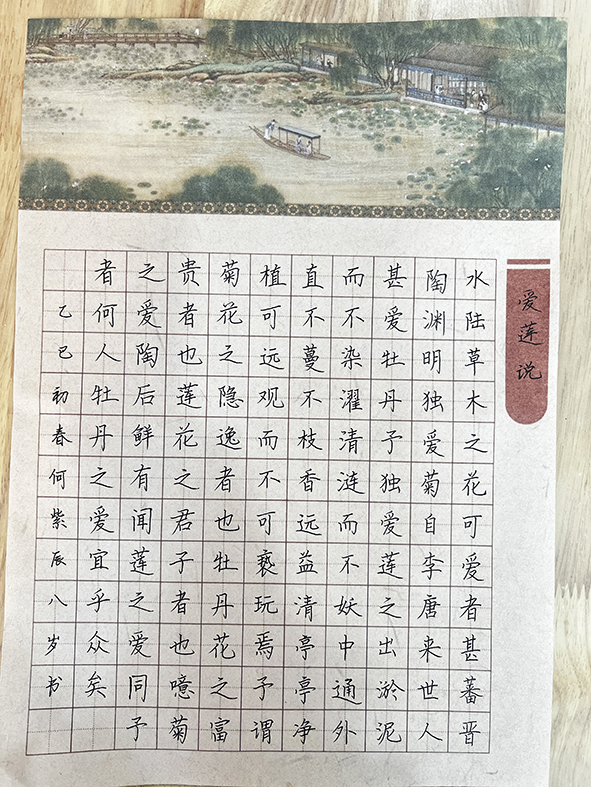 爱莲说
水陆草木之花可爱者甚蕃晋
陶渊明独爱菊自李唐来世人
甚爱牡丹予独爱莲之出淤泥
而不染濯清涟而不妖中通外
直不蔓不枝香远益清亭亭净
植可远观而不可亵玩焉予谓
菊花之隐逸者也牡丹花之富
贵者也莲花之君子者也噫菊
之爱陶后鲜有闻莲之爱同予
者何人牡丹之爱宜乎众矣
乙巳初春何紫辰八岁书